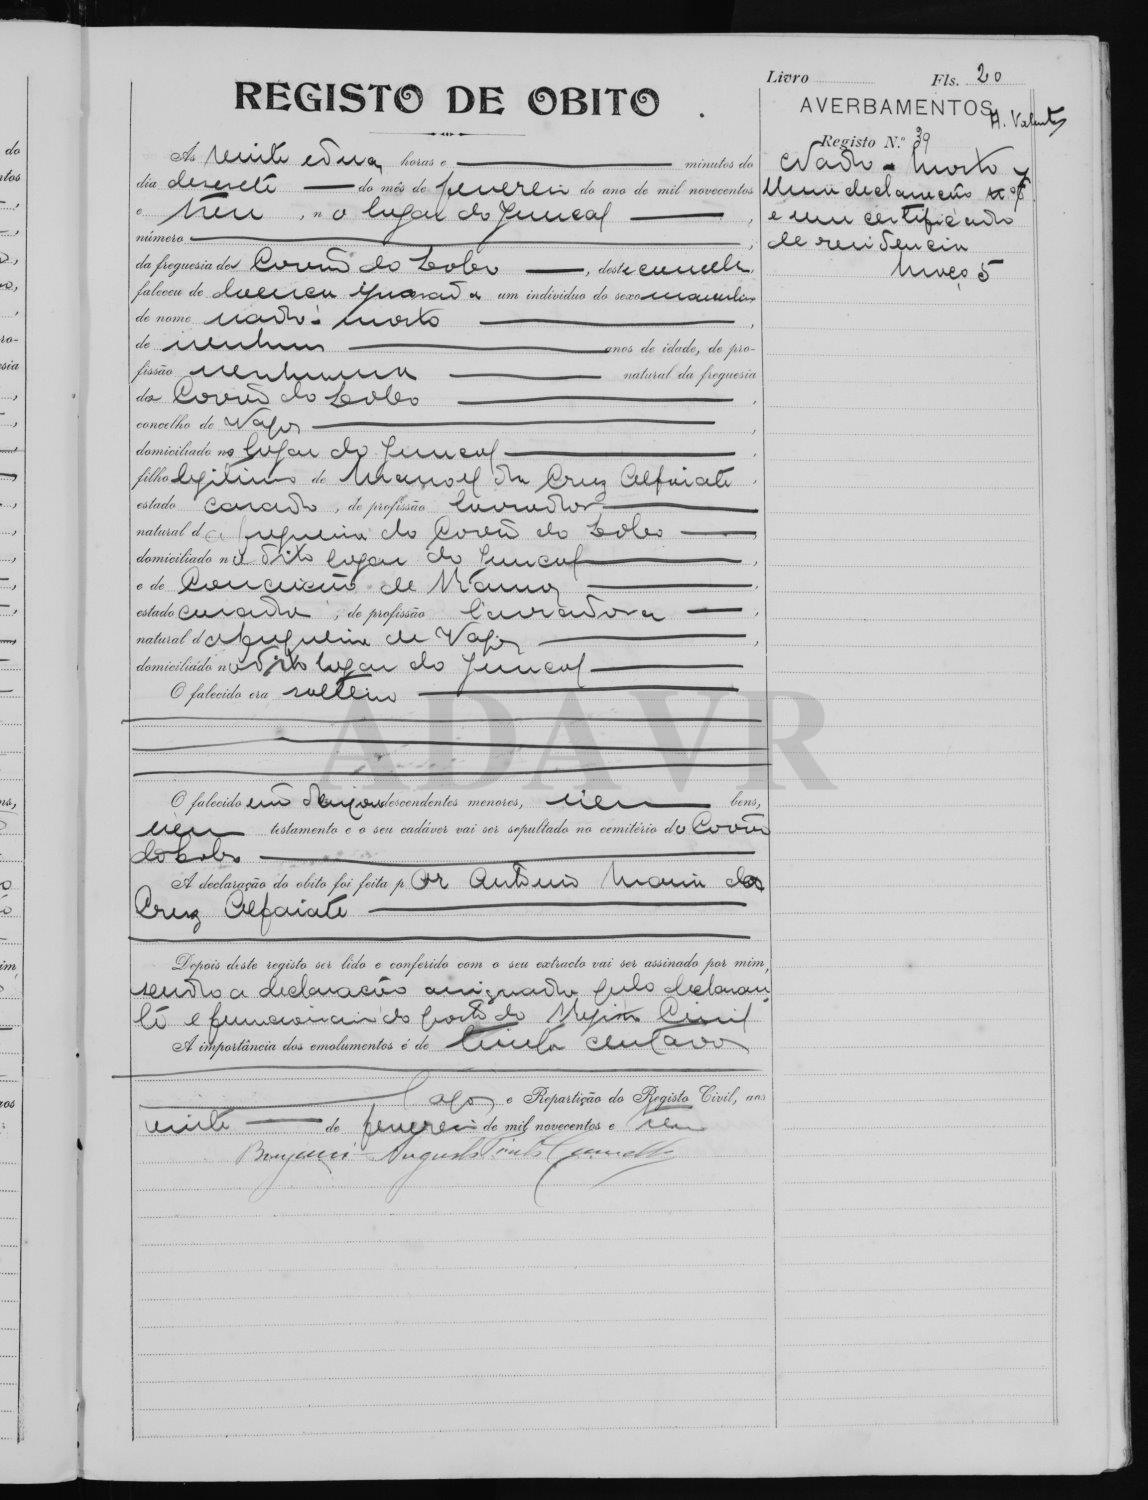 Livro Fls. 20
REGISTO DE OBITO
AVERBAMENTOS
Registo N.º 39
Nado-morto
Uma declaração nº
e um certificado
de residencia
Março 5
Ás vinte e duas horas e minutos do
dia desesete do mês de fevereiro do ano de mil novecentos
e , no lugar do Juncal ,
número ,
da freguesia de Covão do Lobo , deste concelho,
faleceu de doença ignorada um individuo do sexo masculino
de nome nado-morto ,
de nenhuns anos de idade, de pro-
fissão nenhuma natural da freguesia
do Covão do Lobo ,
concelho de Vagos ,
domiciliado no lugar do Juncal ,
filho legitimo de Manoel da Cruz Alfaiate ,
estado casado , de profissão lavrador ,
natural da freguesia do Covão do Lobo ,
domiciliado no dito lugar do Juncal ,
e de Conceição de ,
estado casada , de profissão lavradora ,
natural da freguesia de Vagos ,
domiciliado no dito lugar do Juncal
O falecido era solteiro
ADAVR
O falecido não deixou descendentes menores, nem bens,
nem testamento e o seu cadáver vai ser sepultado no cemitério do Covão
do Lobo
A declaração do obito foi feita por Antonio Maria da
Cruz Alfaiate
Depois deste registo ser lido e conferido com o seu extracto vai ser assinado por mim,
sendo a declaração assignada pelo declaran-
te e funcionario do posto do Registo Civil
A importância dos emolumentos é de trinta centavos
Vagos e Repartição do Registo Civil, aos
vinte de fevereiro de mil novecentos e
Augusto